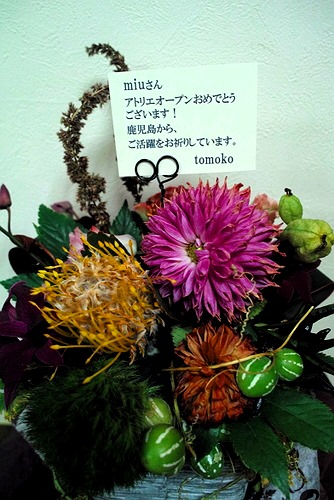 miuさん
アトリエオープンおめでとう
ございます！
鹿児島から、
ご活躍をお祈りしています。
tomoko